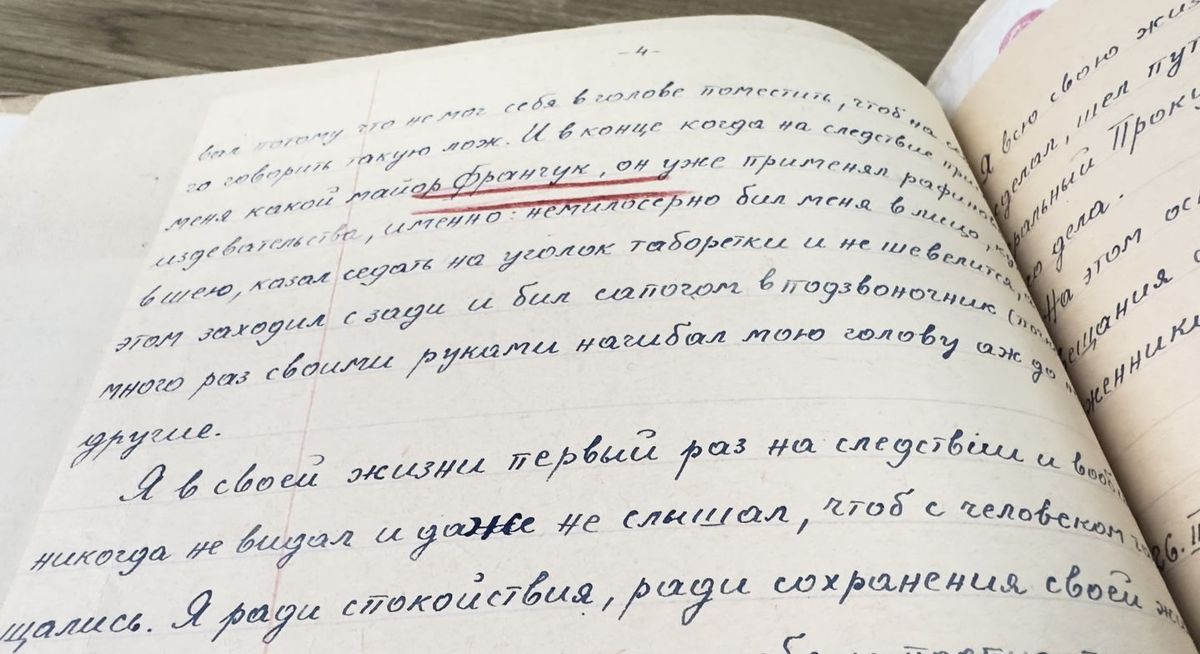 -4-
вал потому что не мог себя в голове поместить, чтоб на
го говорить такую лож. И в конце когда на следствие
меня какой майор Франчук, он уже применял
издевательства, именно: немилосерно бил меня в лицо,
в шею, казал седать на уголок таборетки и не шевелится,
этом заходил с зади и бил сапогом в подзвоночник
много раз своими руками нагибал мою голову аж до
другие.
Я в своей жизни первый раз на следствіи и
никогда не видал и даже не слышал, чтоб с человеком
щались. Я ради спокойствия, ради сохранения своей
Я всю свою
шел
Проки
дела.
На этом
26.